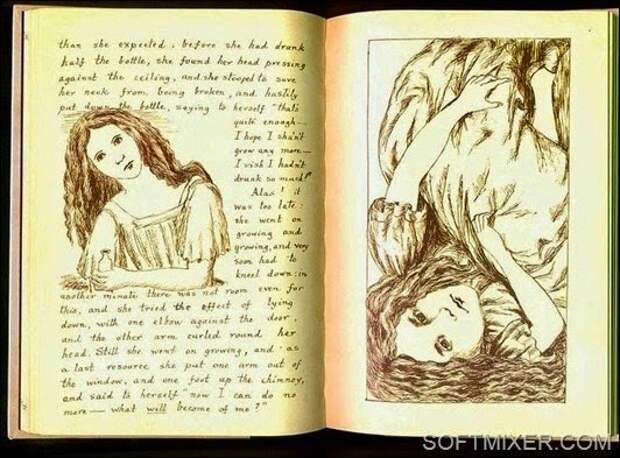 than she expected: before she had drunk
half the bottle, she found her head pressing
against the ceiling, and she stooped to save
her neck from being broken, and hastily
put down the bottle, saying to herself "that's
quite enough—
I hope I shan't
grow any more—
I wish I hadn't
drunk so much!"
Alas! it
was too late:
she went on
growing and
growing, and very
soon had to
kneel down: in
another minute there was not room even for
this, and she tried the effect of lying
down, with one elbow against the door,
and the other arm curled round her
head. Still she went on growing, and as
a last resource she put one arm out of
the window, and one foot up the chimney,
and said to herself "now I can do no
more — what will become of me?"
SOFTMIXER.COM